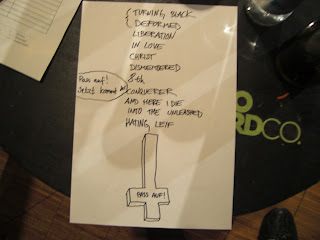 TURNING BLACK
DEFORMED
LIBERATION
IN LOVE
CHRIST
DISMEMBERED
8th
CONQUERER
AND HERE I DIE
INTO THE UNLEASHED
HATING, LEIF
Pass auf!
jetzt kommt
PASS AUF!
RDCO.